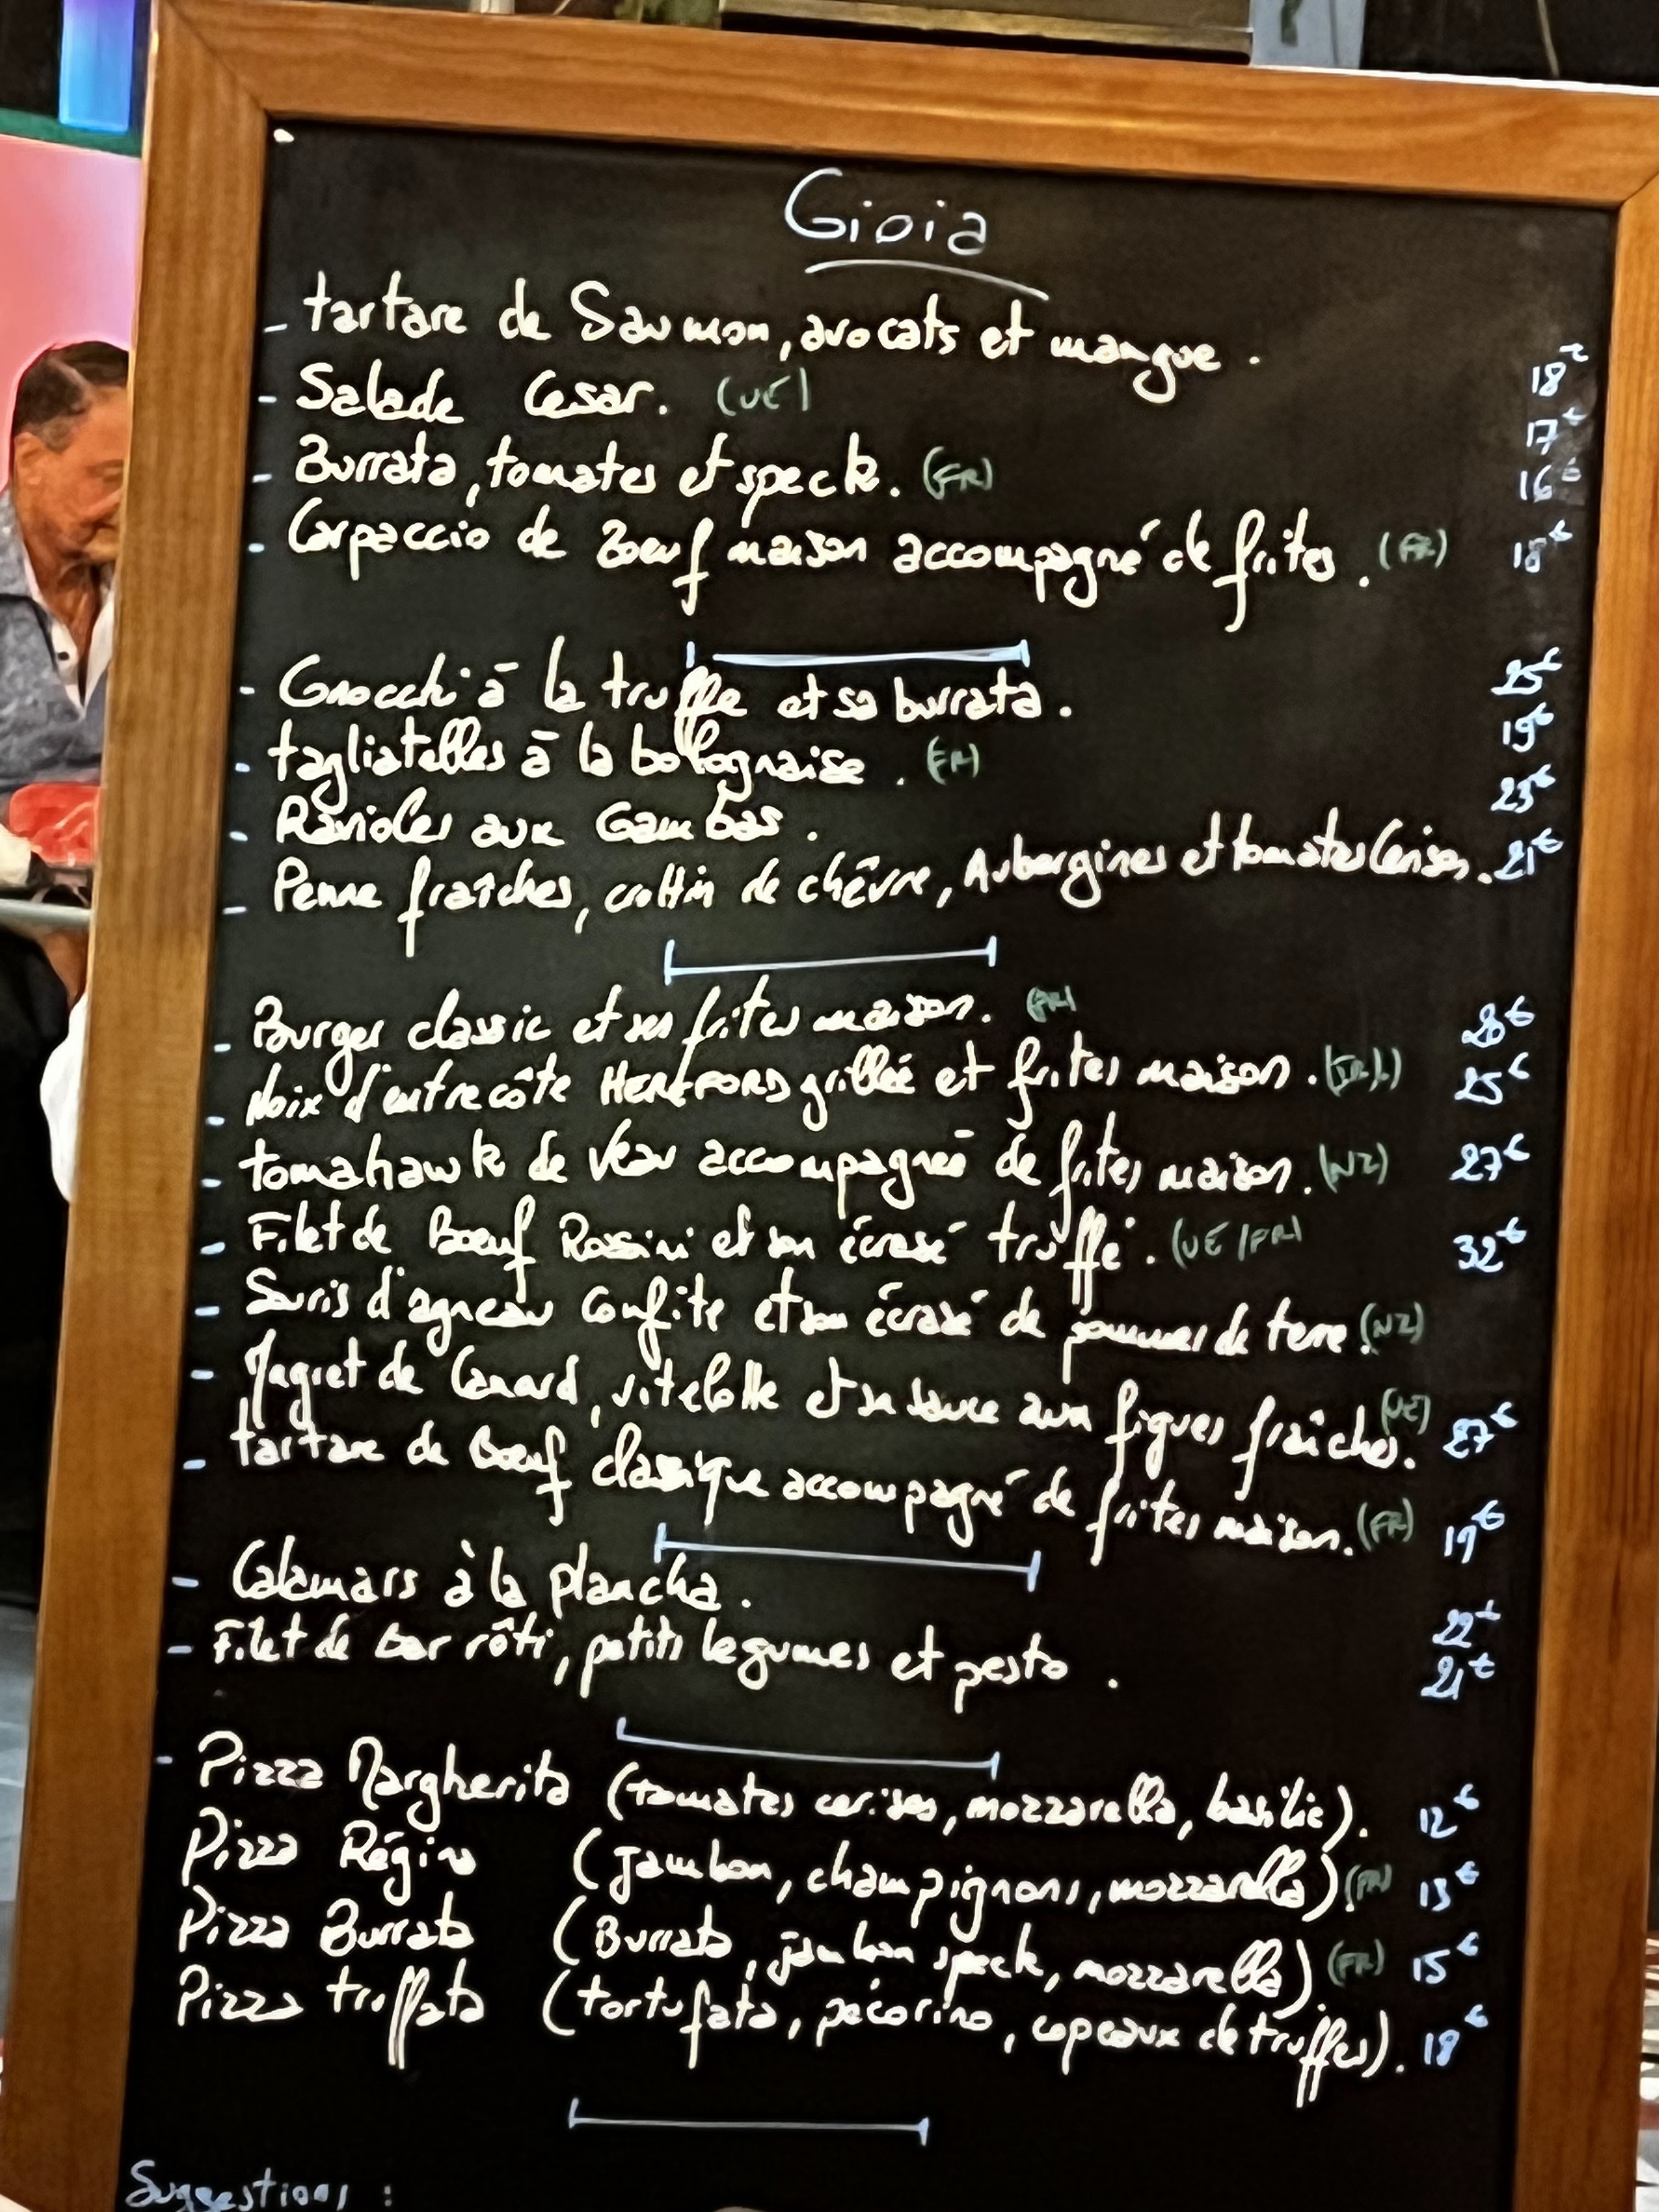 Gioia
- tartare de Saumon, avocats et mangue. 18€
- Salade Cesar. (UE) 17€
- Burrata, tomates et speck. (FR) 16€
- Carpaccio de Boeuf maison accompagné de frites. (FR) 18€
- Gnocchi à la truffe et sa burrata. 25€
- tagliatelles à la bolognaise. (FR) 19€
- Ravioles aux Gambas. 23€
- Penne fraîches, crottin de chêvre, Aubergines et tomates Cerises. 21€
- Burger classic et ses frites maison. (FR) 20€
- Noix d'entrecôte HEREFORD grillée et frites maison. (IRL) 25€
- tomahawk de Veau accompagnée de frites maison. (NZ) 27€
- Filet de Boeuf Rossini et son écrasé truffé. (UE/FR) 32€
- Souris d'agneau confite et son écrasé de pommes de terre. (NZ)
- Magret de Canard, vitelotte et sa sauce aux figues fraîches. (UE) 27€
- tartare de Boeuf classique accompagné de frites maison. (FR) 19€
- Calamars à la plancha. 22€
- Filet de bar rôti, petits legumes et pesto. 21€
- Pizza Margherita (tomates cerises, mozzarella, basilic). 12€
Pizza Régina (jambon, champignons, mozzarella) (FR) 13€
Pizza Burrata (Burrata, jambon speck, mozzarella). (FR) 15€
Pizza truffata (tortufata, pécorino, copeaux de truffes). 18€
Suggestions :